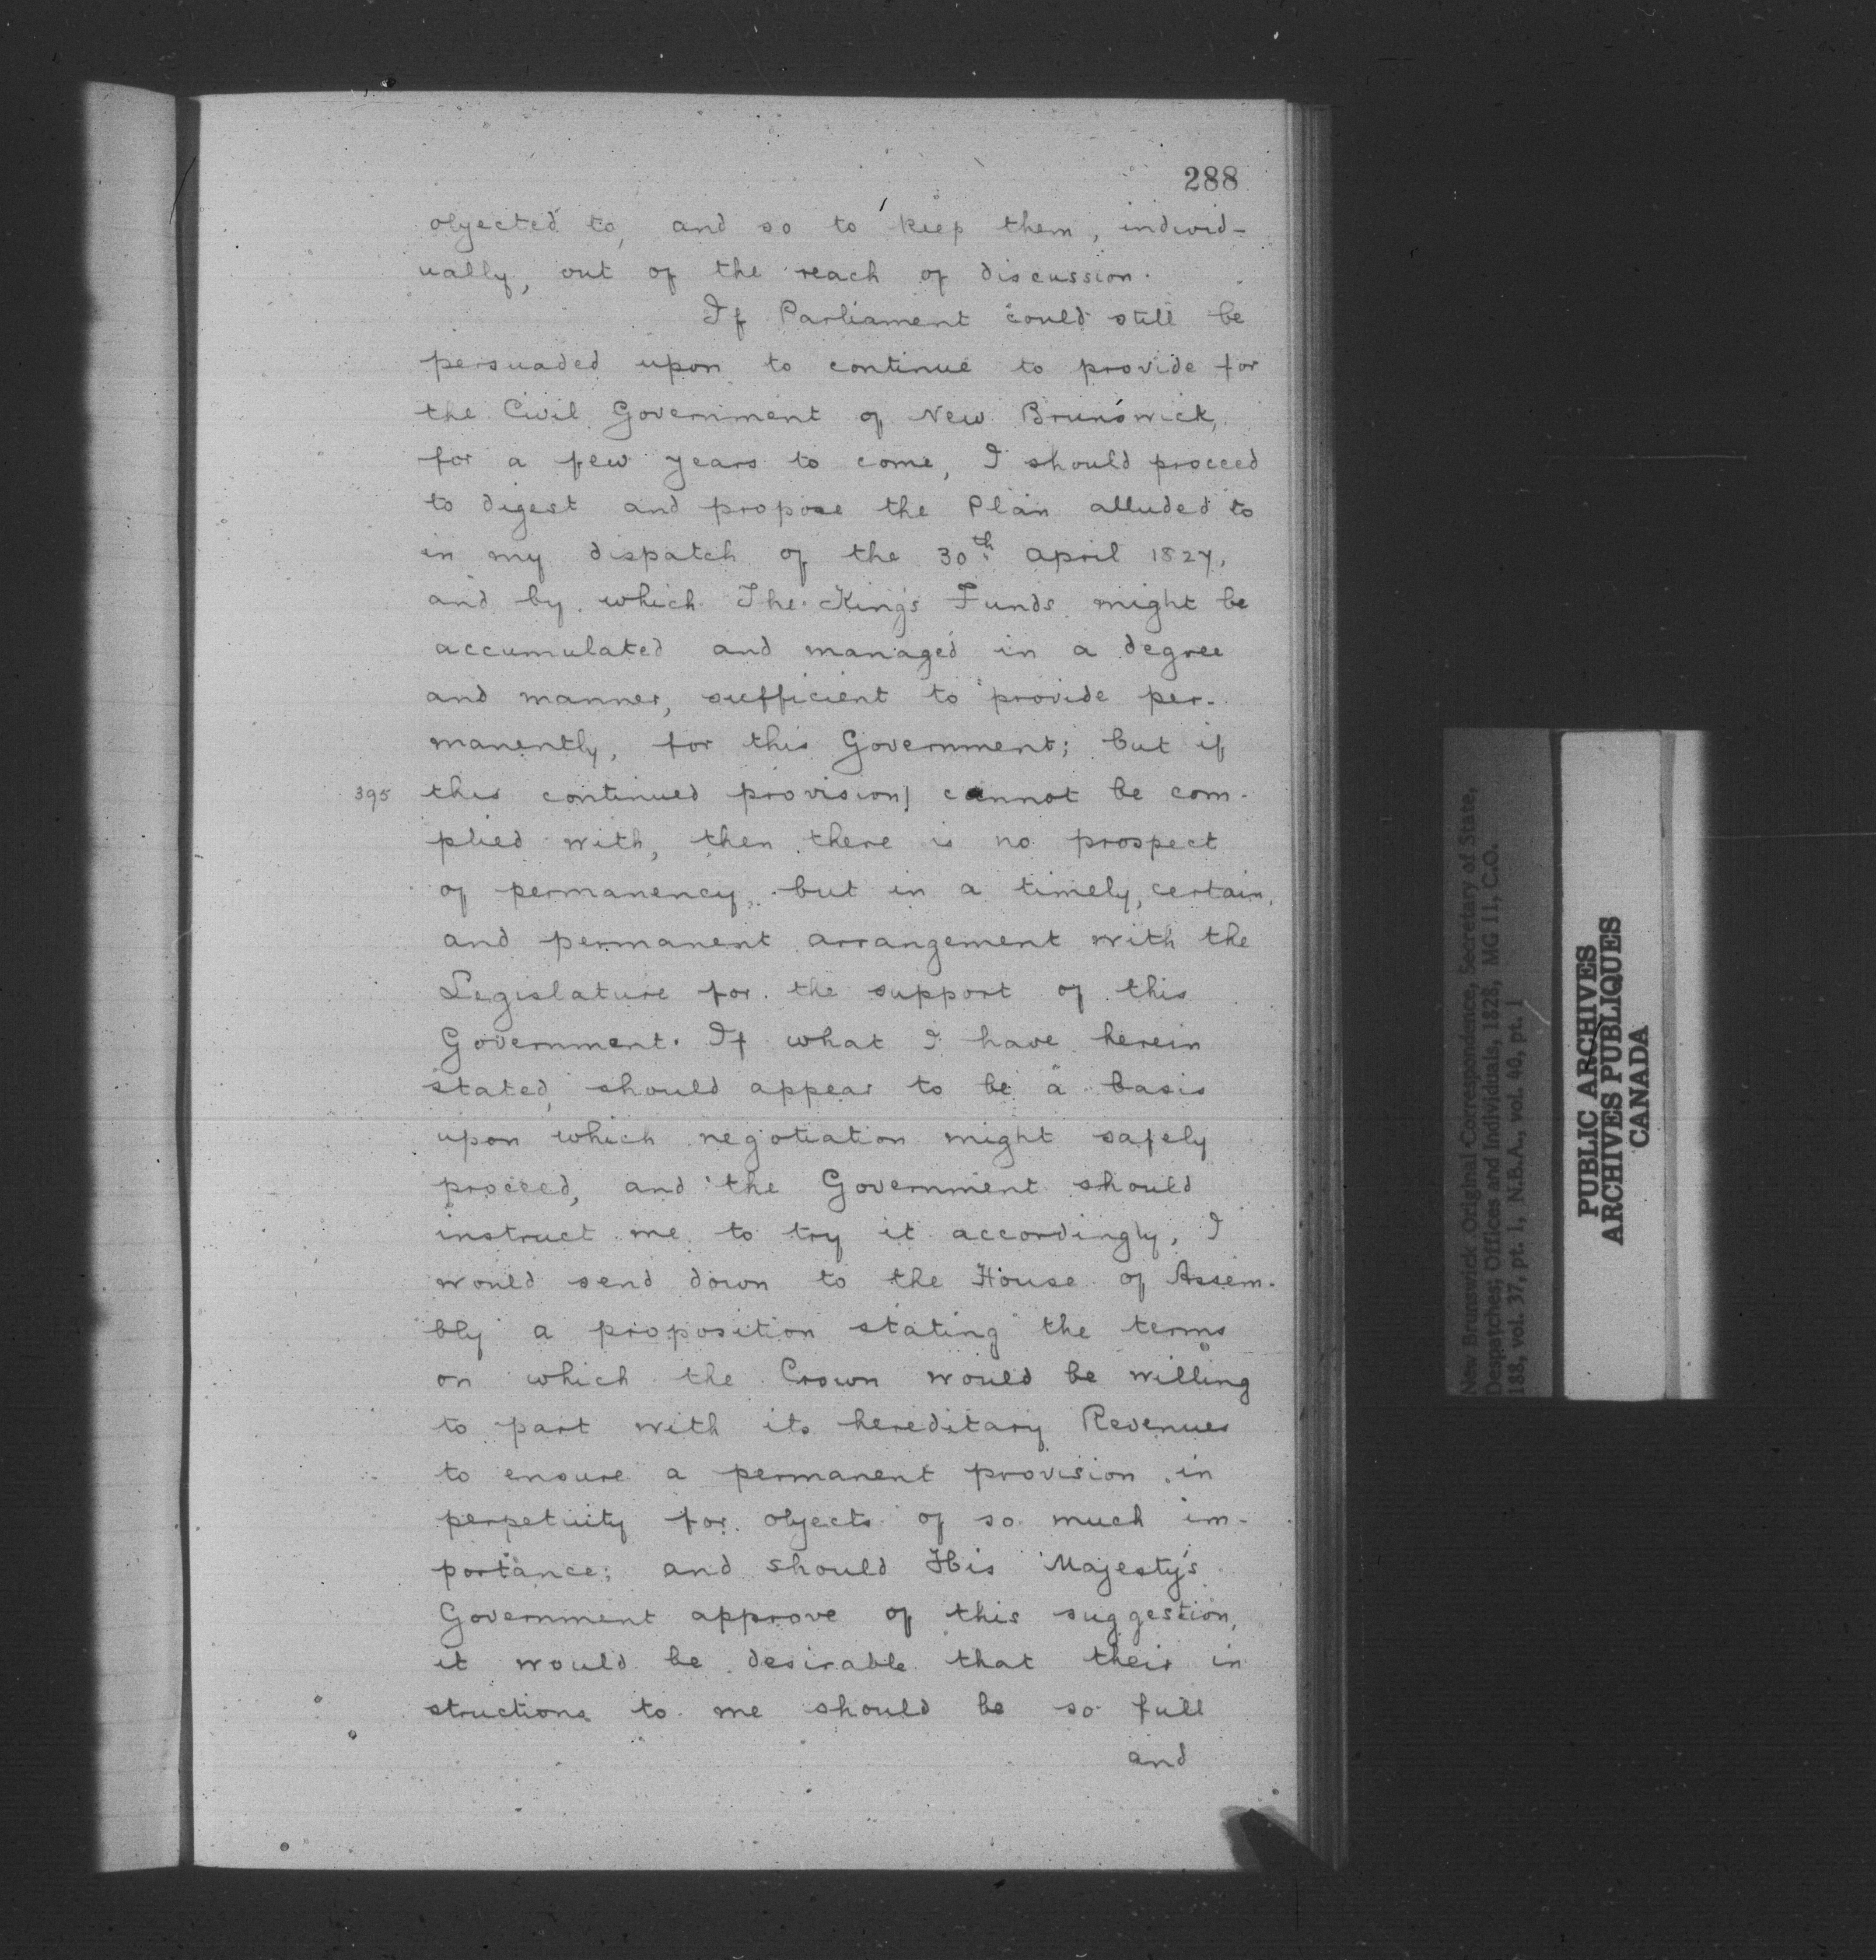 288
objected to, and so to keep them, individ-
ually, out of the reach of discussion.
If Parliament could still be
persuaded upon to continue to provide for
the Civil Government of New Brunswick,
for a few years to come, I should proceed
to digest and propose the Plan alluded to
in my dispatch of the 30th April 1827,
and by which The King's Funds might be
accumulated and managed in a degree
and manner, sufficient to provide per-
manently, for this Government; but if
395 this continued provision] cannot be com-
plied with, then there is no prospect
of permanency, but in a timely, certain,
and permanent arrangement with the
Legislature for the support of this
Government. If what I have herein
stated, should appear to be a basis
upon which negotiation might safely
proceed, and the Government should
instruct me to try it accordingly, I
would send down to the House of Assem-
bly a proposition stating the terms
on which the Crown would be willing
to part with its hereditary Revenues
to ensure a permanent provision in
perpetuity for objects of so much im-
portance; and should His Majesty's
Government approve of this suggestion,
it would be desirable that their in
structions to me should be so full
and
New Brunswick Original Correspondence, Secretary of State,
Despatches; Offices and Individuals, 1828, MG 11, C.O.
188, vol. 37, pt. 1, N.B.A., vol. 40, pt. 1
PUBLIC ARCHIVES
ARCHIVES PUBLIQUES
CANADA